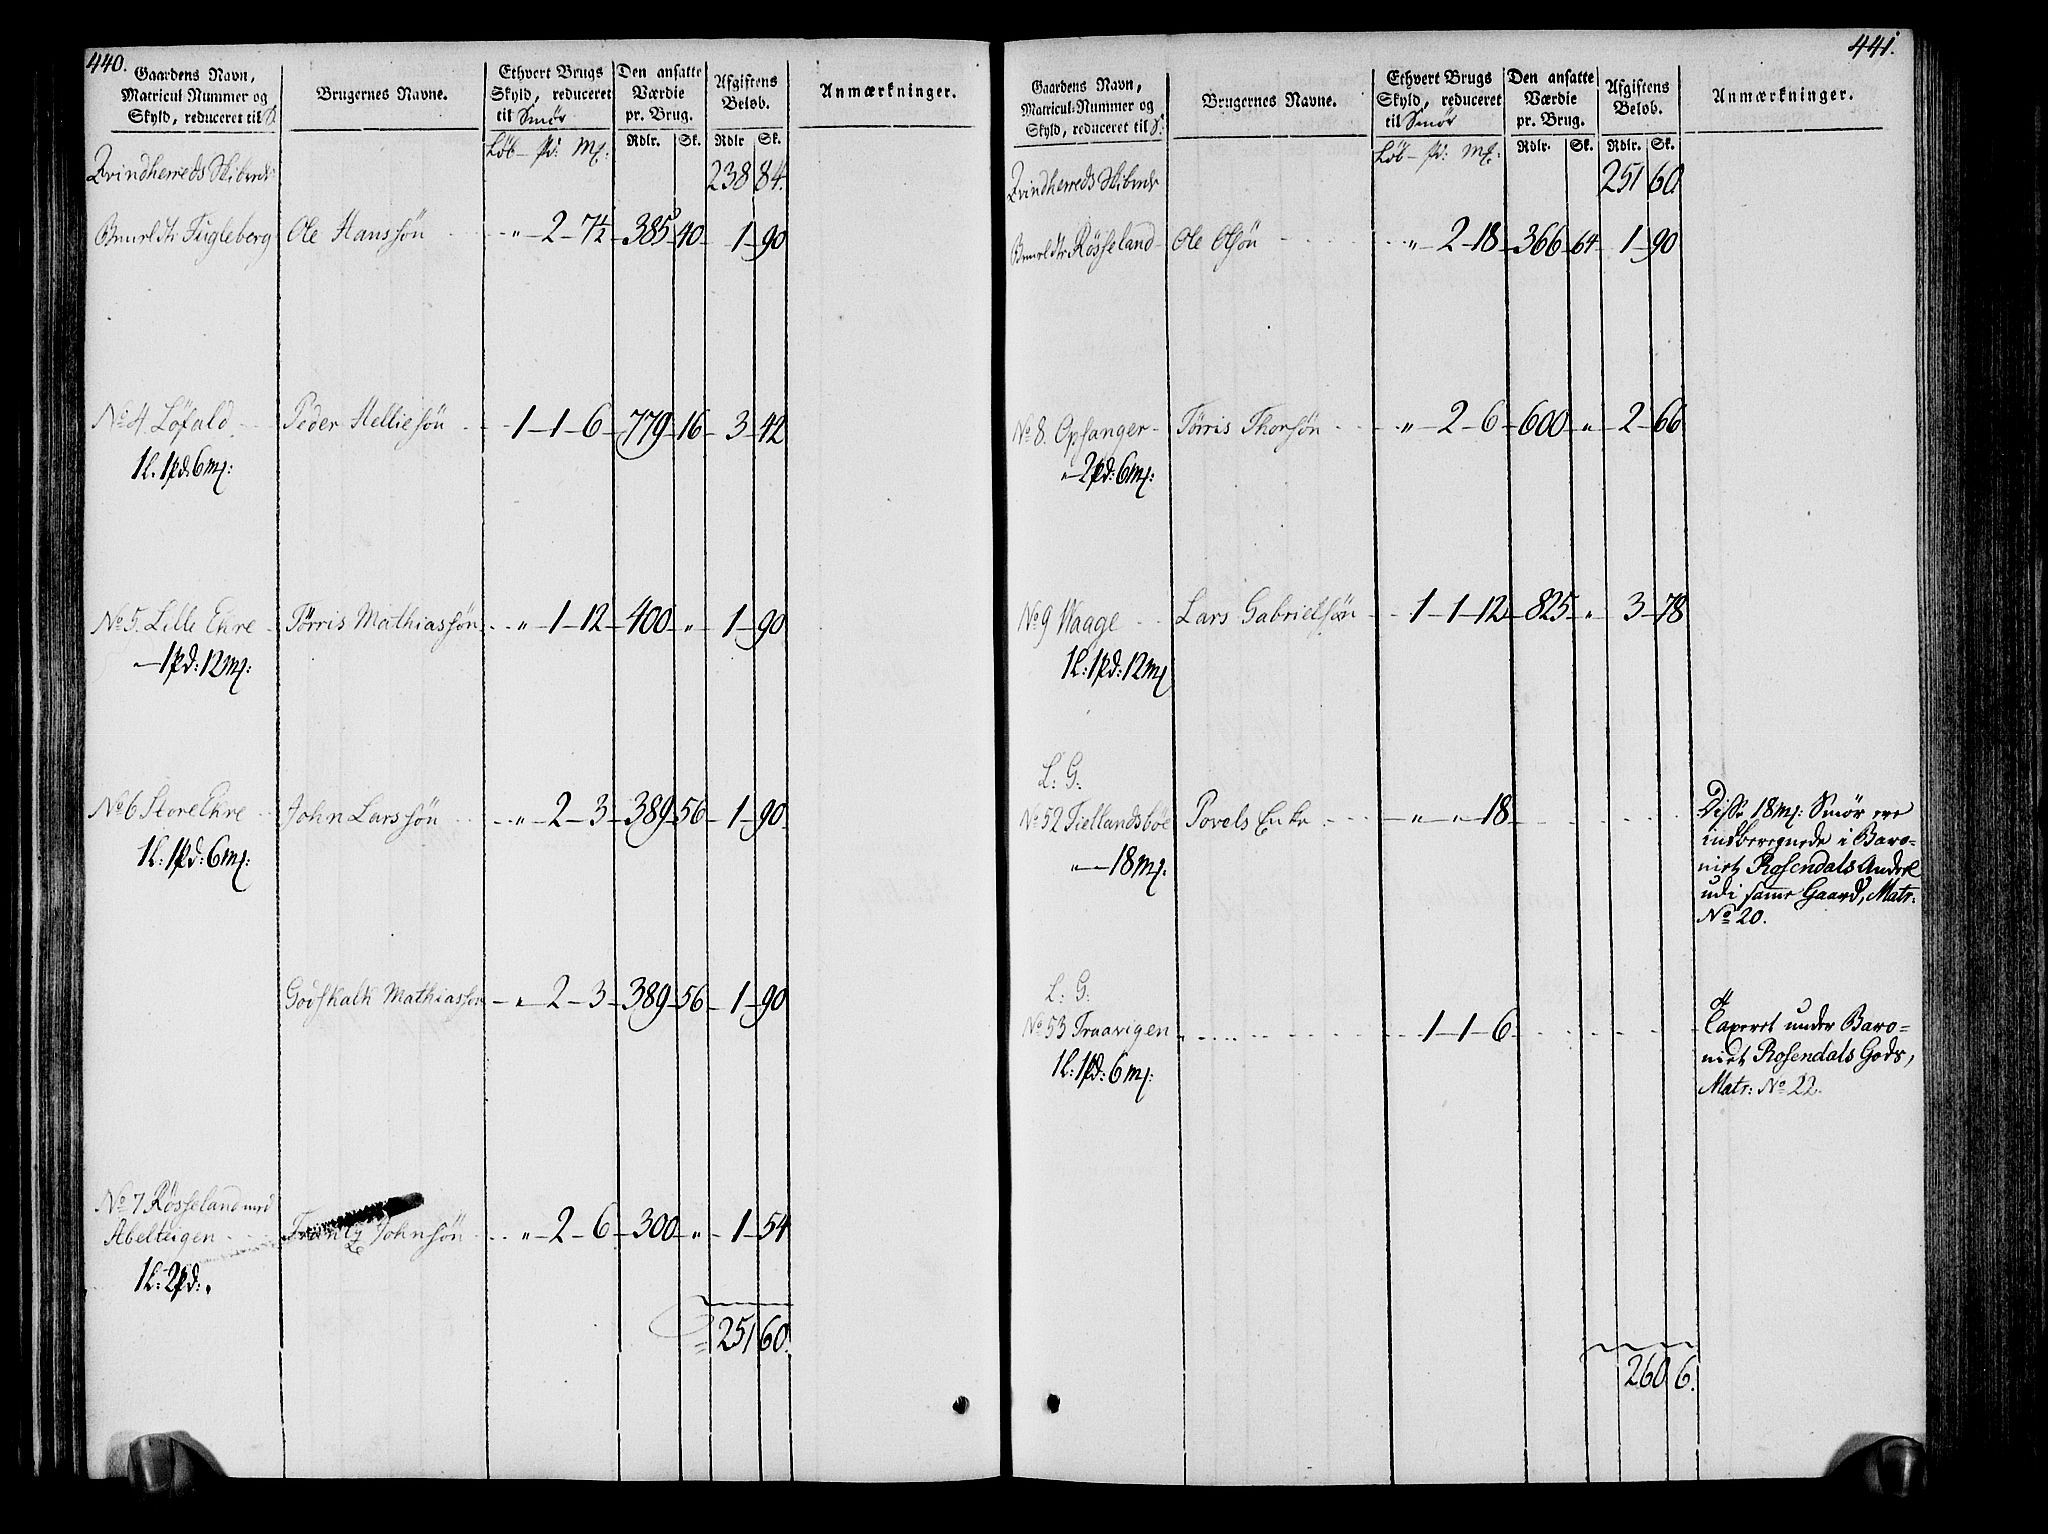 440.
Gaardens Navn, Matricul Nummer og Skyld, reduceret til S. | Brugernes Navne. | Ethvert Brugs Skyld, reduceret til Smör | Den ansatte Værdie pr. Brug. | Afgiftens Beløb. | Anmærkninger.
Löb – pd: Mk: | Rdlr. Sk. | Rdlr Sk.
Qvindherreds Skibrede 238 84.
Fugleberg Ole Hanssön „ 2 – 7½ – 385 – 40 – 1 – 90
No 4. Löfald Peder Helliesön 1 – 1 – 6 – 779 – 16 – 3 – 42
1l. 1pd: 6mk:
No 5. Lille Ehre Törris Mathiassön „ – 1 – 12 – 400 „ – 1 – 90
„ – 1pd: 12mk:
No 6 Store Ehre John Larssön „ – 2 – 3 – 389 – 56 – 1 – 90
1l: 1pd: 6mk:
Godskalk Mathiassön „ – 2 – 3 – 389 – 56 – 1 – 90
No 7 Rösseland med
Abelteigen Johnsön „ – 2 – 6 – 300 „ – 1 – 54
1l: 2pd: „
251 60.
441.
Gaardens Navn, Matricul-Nummer og Skyld, reduceret til S. | Brugernes Navne. | Ethvert Brugs Skyld, reduceret til Smör | Den ansatte Værdie pr. Brug. | Afgiftens Beløb. | Anmærkninger.
Löb – pd: Mk: | Rdlr. Sk. | Rdlr. Sk.
Qvindherreds Skibrede 251 60
Rösseland Ole Olsön „ 2 – 18 – 366 – 64 – 1 – 90
No 8. Opsanger Törris Thorsön „ – 2 – 6 – 600 „ – 2 – 66
„ – 2pd: 6mk:
No 9 Waage Lars Gabrielsön 1 – 1 – 12 – 825 „ – 3 – 78
1l: 1pd: 12mk
L: G:
No 52 Fiellandsböe Povels Enke „ – „ – 18
„ – 18mk.
Disse 18mk: Smör ere
indberegnede i Baro-
niet Rosendals Andeel
udi samme Gaard, Matr:
No 20.
L: G:
No 53 Traavigen 1 – 1 – 6
1l: 1pd: 6mk:
Taxeret under Baro-
niet Rosendals Gods,
Matr: No 22.
260 6.